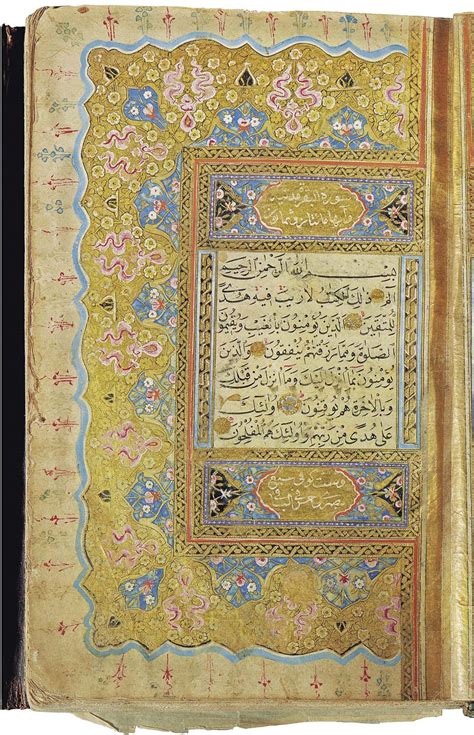 سورة البقرة مدنية
بسم الله الرحمن الرحيم
الم ذلك الكتب لا ريب فيه هدى
للمتقين الذين يؤمنون بالغيب ويقيمون
الصلوة ومما رزقنهم ينفقون والذين
يؤمنون بما انزل اليك وما انزل من قبلك
وبالاخرة هم يوقنون اولئك
على هدى من ربهم واولئك هم المفلحون